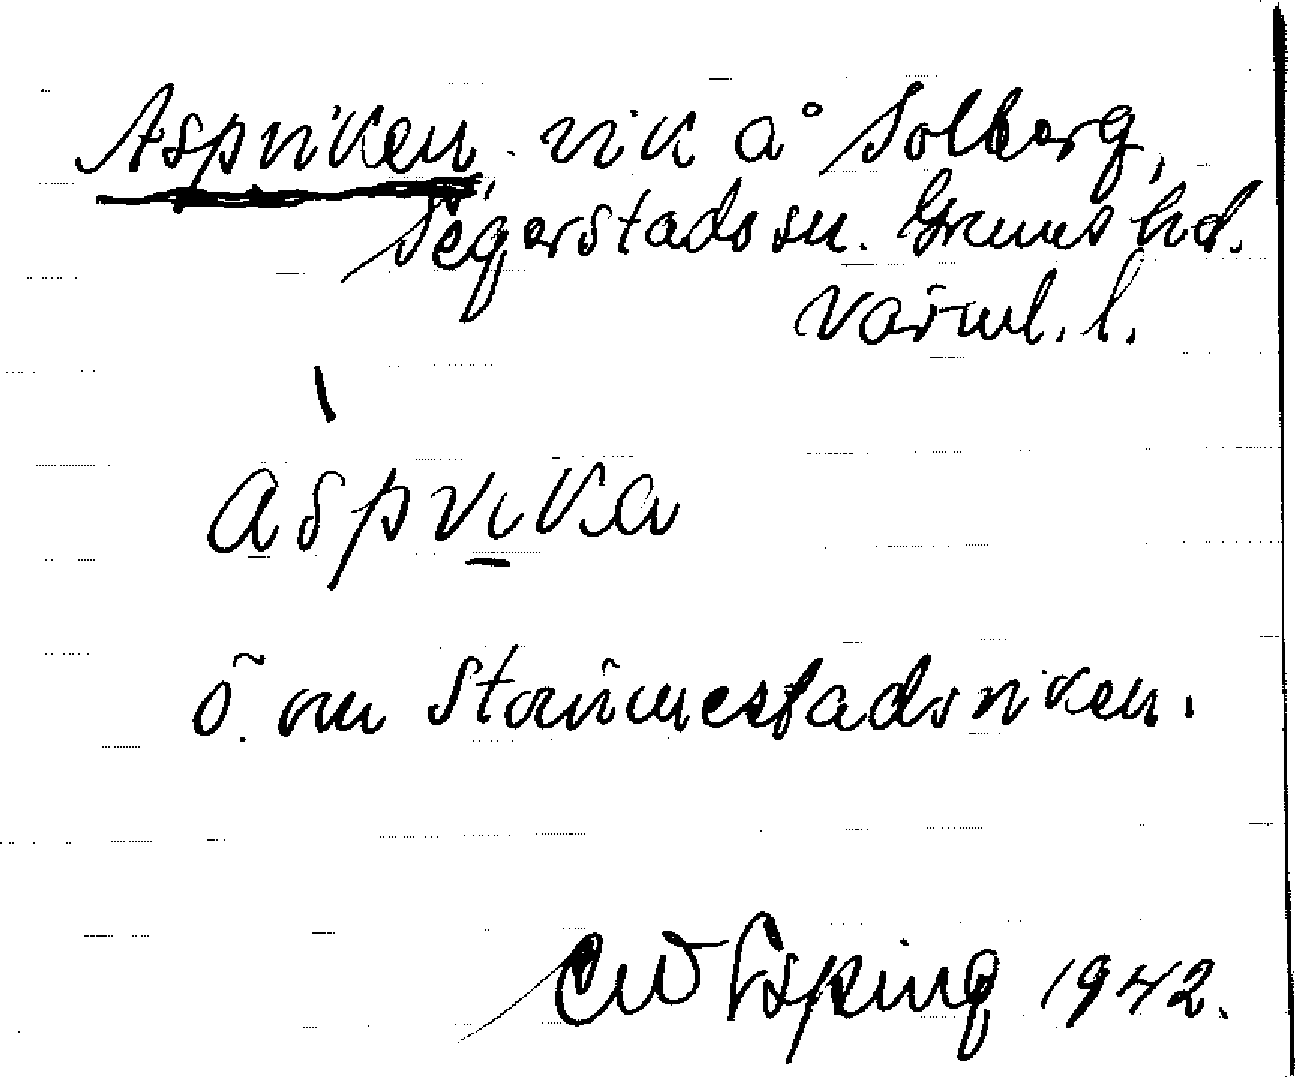 Aspviken, vik å Solberg,
Segerstads sn. Grums hd.
Värml. l.
àspvika
ö. om Stömmestadsviken.
CW Esping 1942.